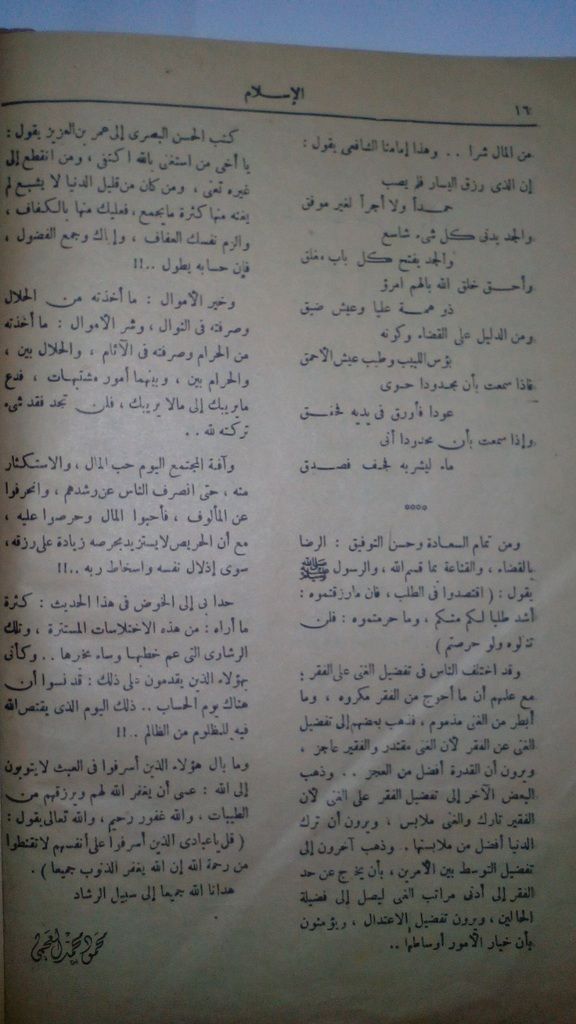 ١٦
الإسلام
من المال شرا . . وهذا إمامنا الشافعى يقول :
إن الذى رزق اليسار فلم يصب
حمداً ولا أجراً لغير موفق
والجد يدنى كل شىء شاسع
والجد يفتح كل باب مغلق
وأحق خلق الله بالهم امرؤ
ذو همة عليا وعيش ضيق
ومن الدليل على القضاء وكونه
بؤس اللبيب وطيب عيش الأحمق
فاذا سمعت بأن مجدودا حوى
عودا فأورق فى يديه فحقق
وإذا سمعت بأن محدودا أتى
ماء ليشربه فجف فصدق
ومن تمام السعادة وحسن التوفيق : الرضا
بالقضاء ، والقناعة بما قسم الله ، والرسول ﷺ
يقول : ( اقتصدوا فى الطلب ، فان مارزقتموه :
أشد طلبا لكم منكم ، وما حرمتموه : فلن
تنالوه ولو حرصتم )
وقد اختلف الناس فى تفضيل الغنى على الفقر ؛
مع علمهم أن ما أحوج من الفقر مكروه ، وما
أبطر من الغنى مذموم ، فذهب بعضهم إلى تفضيل
الغنى عن الفقر لأن الغنى مقتدر والفقير عاجز ،
ويرون أن القدرة أفضل من العجز . . وذهب
البعض الآخر إلى تفضيل الفقر على الغنى لأن
الفقير تارك والغنى ملابس ، ويرون أن ترك
الدنيا أفضل من ملابستها . وذهب آخرون إلى
تفضيل التوسط بين الأمرين ، بأن يخرج عن حد
الفقر إلى أدنى مراتب الغنى ليصل إلى فضيلة
الحالين ، ويرون تفضيل الاعتدال ، ويؤمنون
بأن خيار الأمور أوساطها ..
كتب الحسن البصرى إلى عمر بن العزيز يقول :
يا أخى من استغنى بالله اكتفى ، ومن انقطع إلى
غيره تعنى ، ومن كان من قليل الدنيا لا يشبع لم
يغنه منها كثرة مايجمع ، فعليك منها بالكفاف ،
والزم نفسك العفاف ، وإياك وجمع الفضول ،
فإن حسابه يطول ..!!
وخير الأموال : ما أخذته من الحلال
وصرفته فى النوال ، وشر الأموال : ما أخذته
من الحرام وصرفته فى الآثام ، والحلال بين ،
والحرام بين ، وبينهما أمور مشتبهات ، فدع
مايريبك إلى مالا يريبك ، فلن تجد فقد شىء
تركته لله . .
وآفة المجتمع اليوم حب المال ، والاستكثار
منه ، حتى انصرف الناس عن رشدهم ، وانحرفوا
عن المألوف ، فأحبوا المال وحرصوا عليه ،
مع أن الحريص لايستزيد بحرصه زيادة على رزقه ،
سوى إذلال نفسه واسخاط ربه ..!!
حدا بى إلى الخوض فى هذا الحديث : كثرة
ما أراه : من هذه الاختلاسات المستترة ، وتلك
الرشاوى التى عم خطبها وساء مخبرها . . وكأنى
بهؤلاء الذين يقدمون على ذلك : قد نسوا أن
هناك يوم الحساب .. ذلك اليوم الذى يقتص الله
فيه للمظلوم من الظالم . . !!
وما بال هؤلاء الذين أسرفوا فى العبث لايتوبون
إلى الله : عسى أن يغفر الله لهم ويرزقهم من
الطيبات ، والله غفور رحيم ، والله تعالى يقول :
( قل ياعبادى الذين أسرفوا على أنفسهم لاتقنطوا
من رحمة الله إن الله يغفر الذنوب جميعا ) .
هدانا الله جميعا إلى سبيل الرشاد
محمود محمد